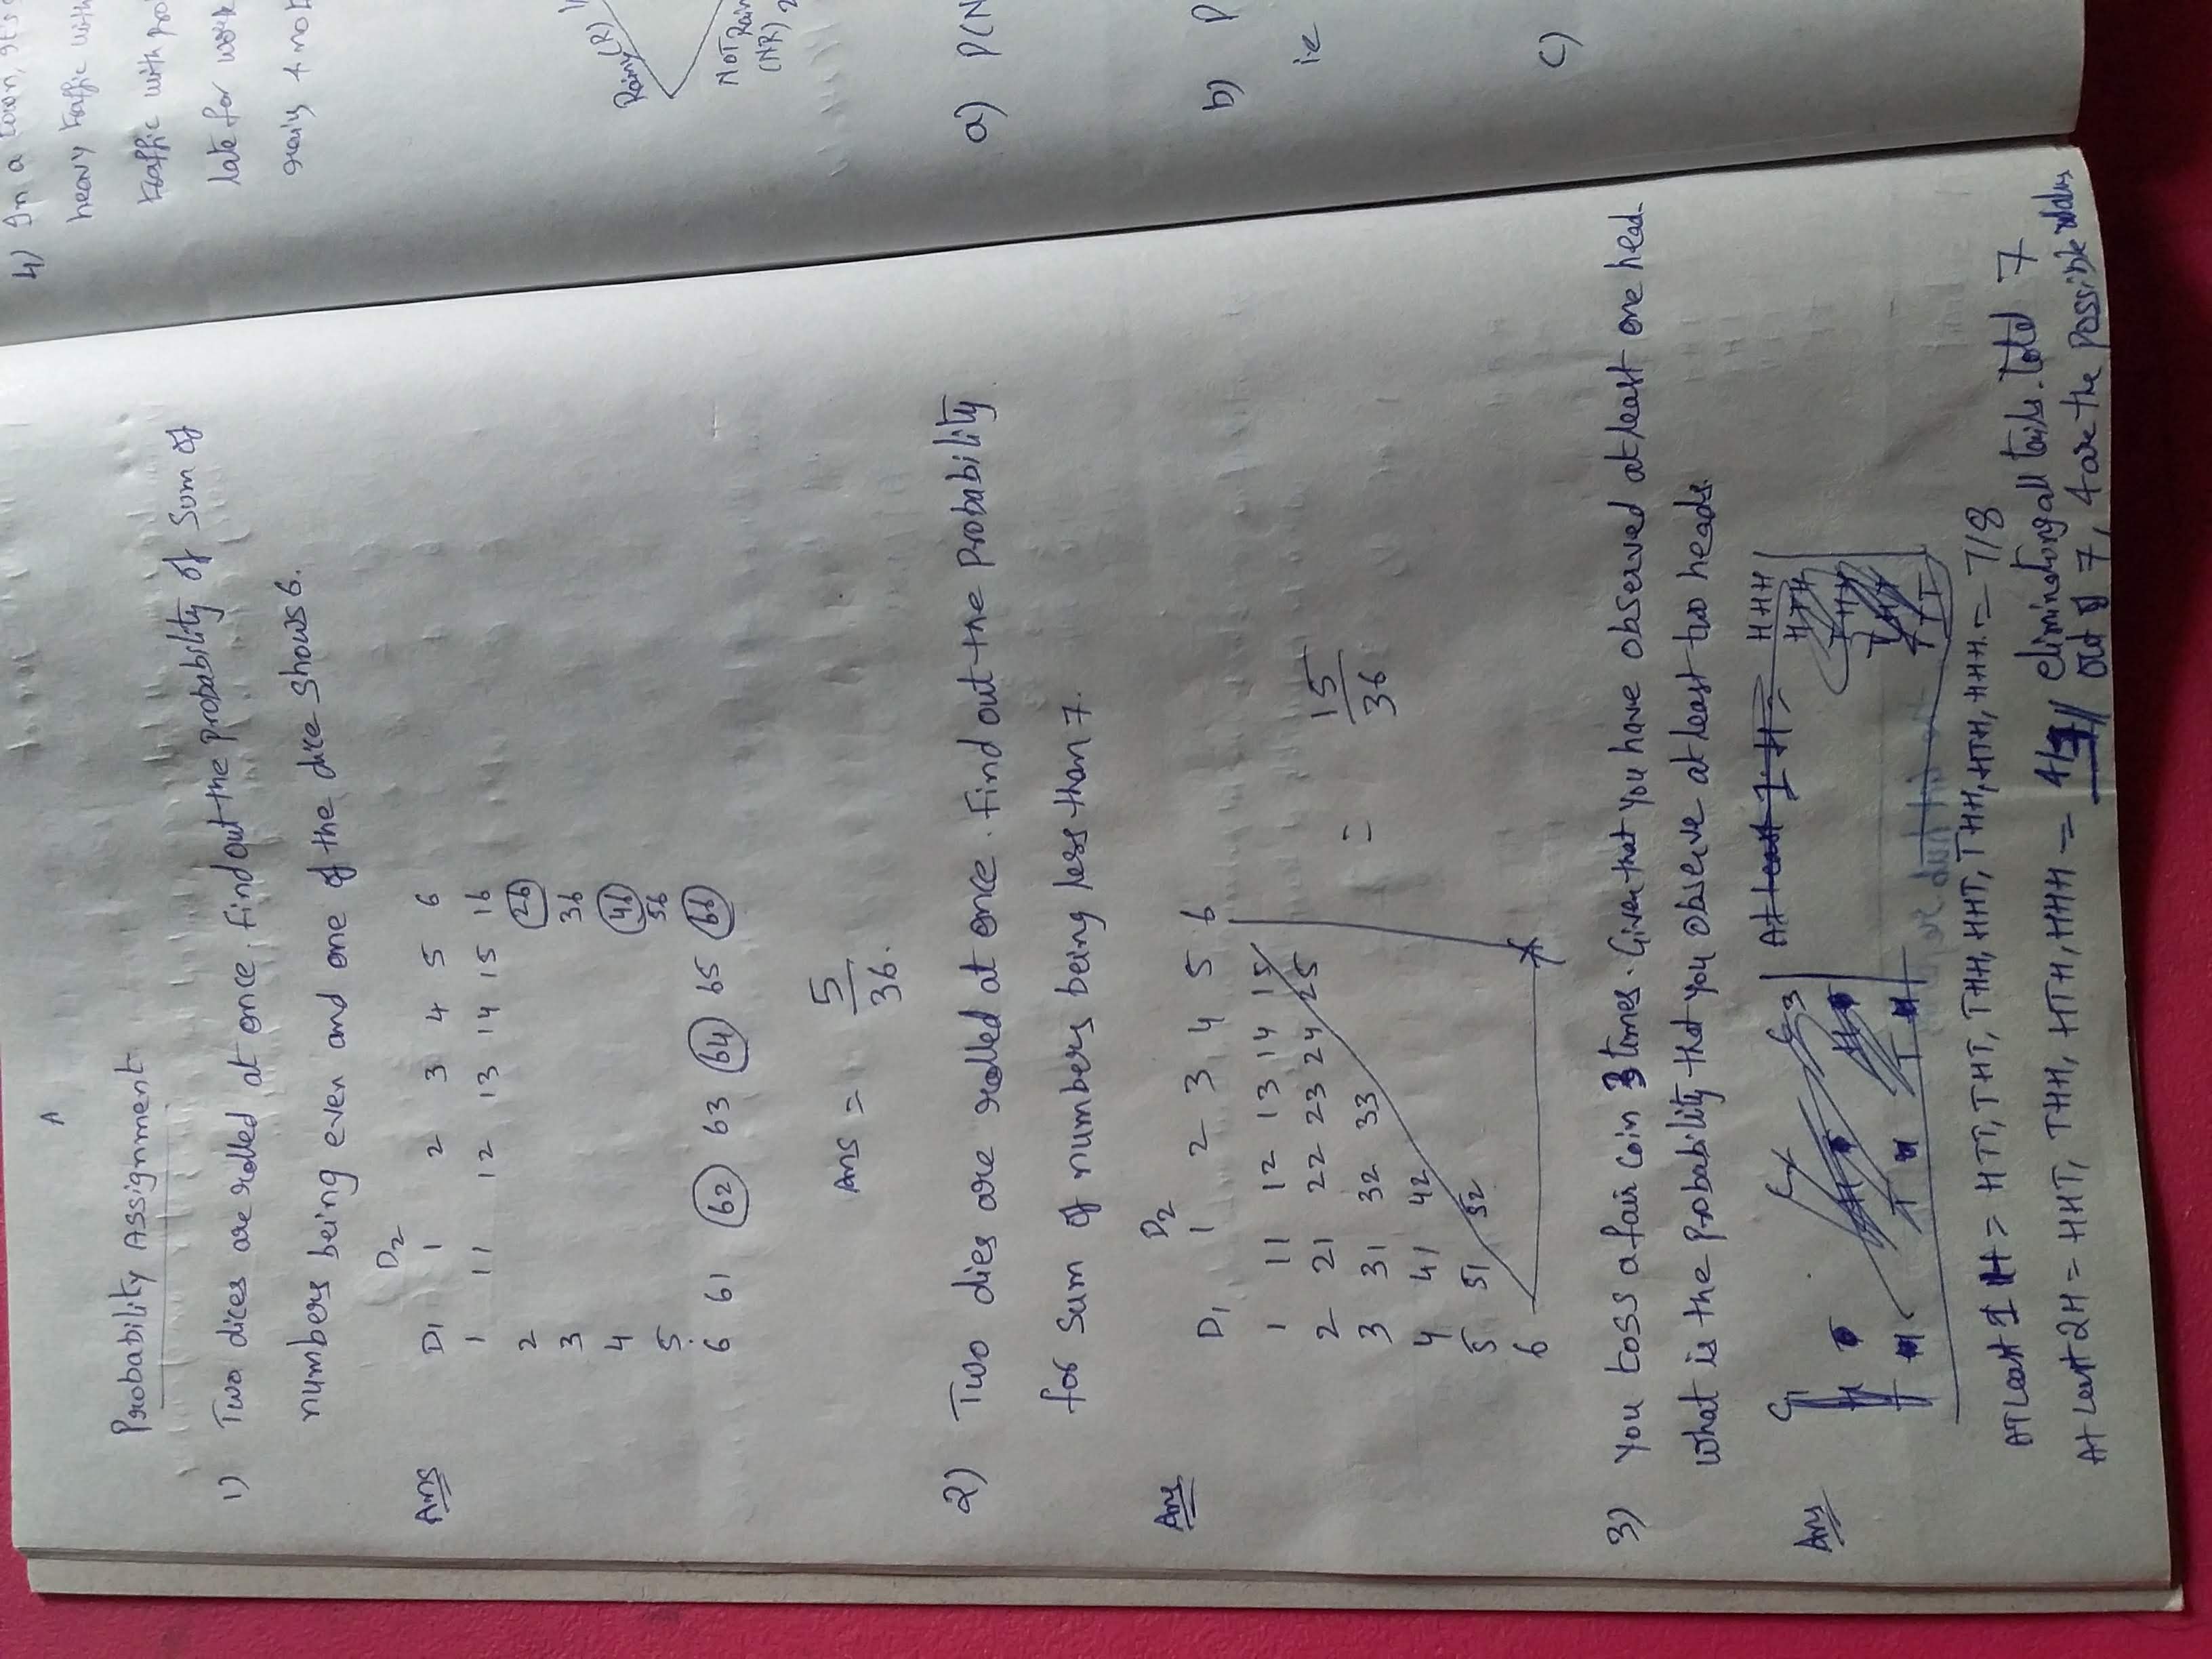 A
Probability Assignment
1) Two dices are rolled at once. Find out the probability of sum of
numbers being even and one of the dice shows 6.
D2
Ans D1 1 2 3 4 5 6
1 11 12 13 14 15 16
2 26
3 36
4 46
5 56
6 61 62 63 64 65 66
Ans = 5/36.
2) Two dies are rolled at once. Find out the Probability
for sum of numbers being less than 7.
Ans D2
D1 1 2 3 4 5 6
1 11 12 13 14 15
2 21 22 23 24 25
3 31 32 33 = 15/36
4 41 42
5 51 52
6
3) You toss a fair coin 3 times. Given that you have observed at least one head.
what is the Probability that you observe at least two heads.
Ans
At least 1 H = HHH
HTH
THH
TTT
AT Least 1 H = HTT, THT, THH, HHT, THH, HTH, HHH. = 7/8
At Least 2H = HHT, THH, HTH, HHH = 4/7 // eliminating all tails. Total 7
Out of 7, 4 are the possible values
4) In a town, it's
heavy traffic with
traffic with pro
late for work
rainy & not
Rainy (R)
NOT Rain
(NR)
a) P(N
b) P
i.e
c)